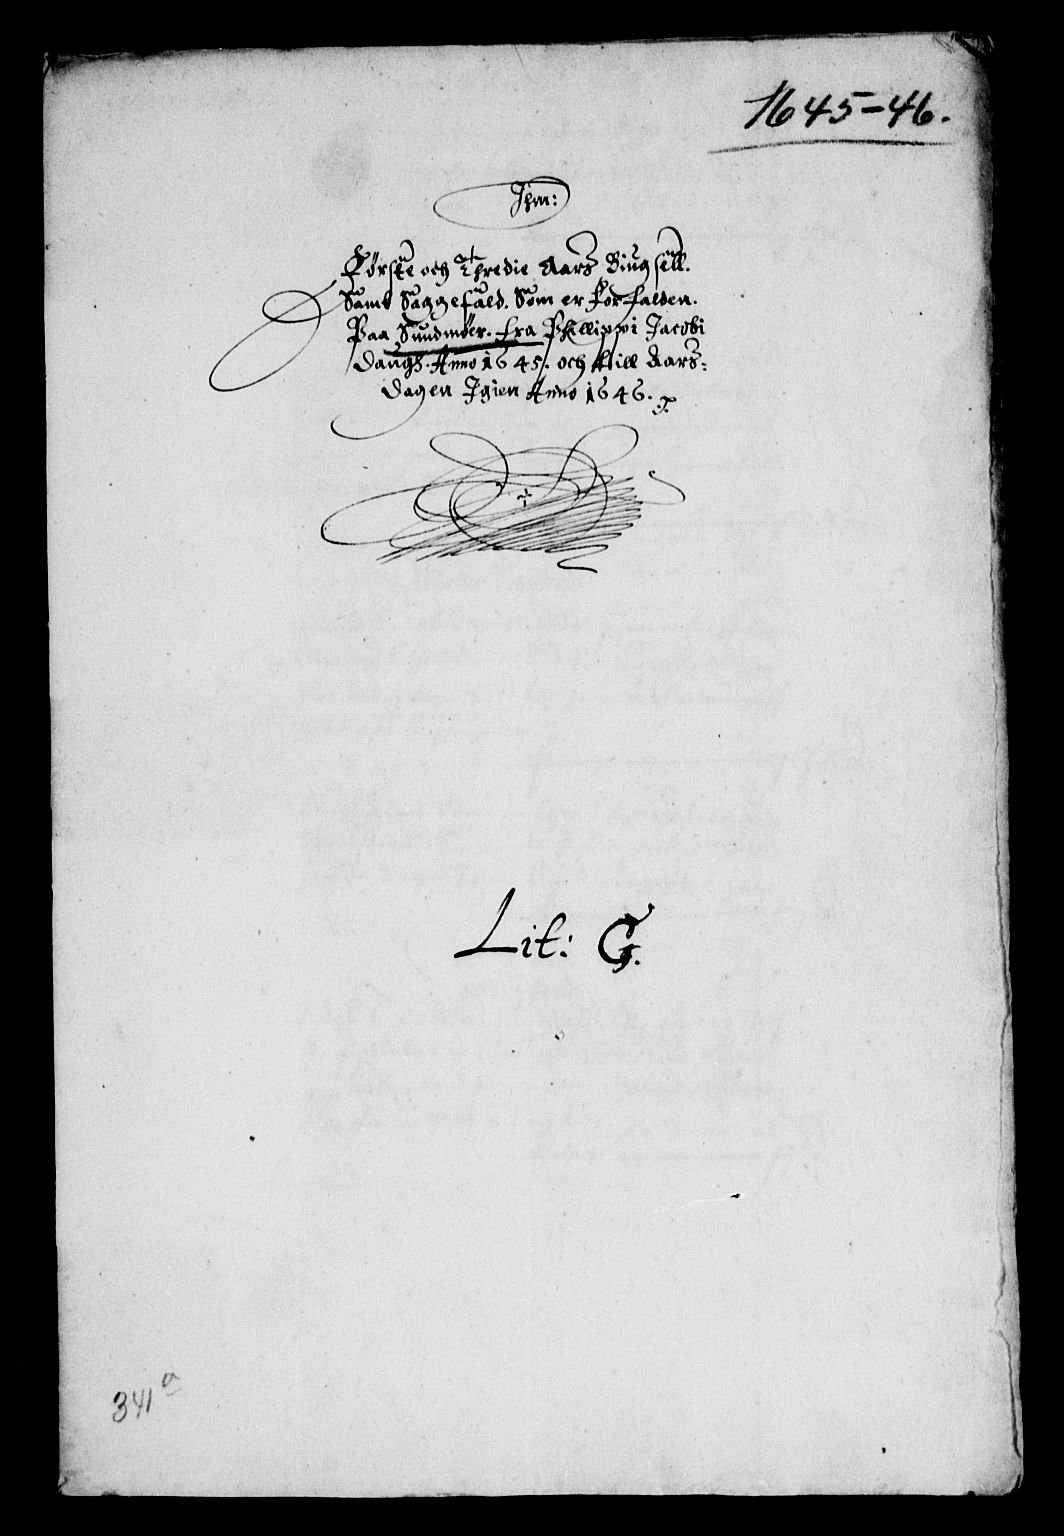 1645-46.
Jhm:
Første och Thredie Aars Bÿugsell.
Sampt Saggefald. Som er forfalden.
Paa Sundmøer. fra Phillippi Jacobi
Daugh. Anno 1645. och till Aars-
dagen Igien Anno 1646.
Lit: G.
341a